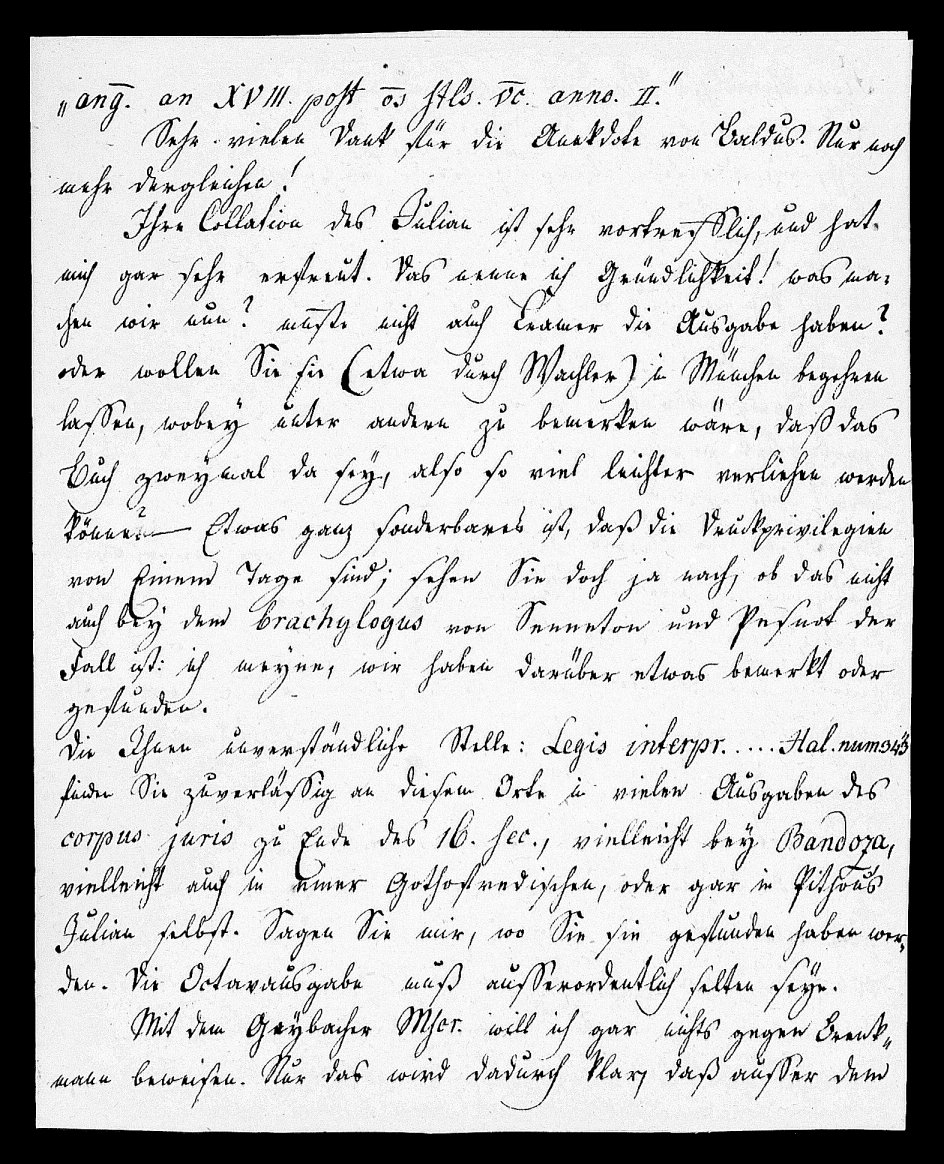 „ang̅. an XVIII. post o̅s Hls. v̅c. anno. II."
Sehr vielen Dank für die Anekdote von Baldus. Nur noch
mehr dergleichen!
Ihre Collation des Julian ist sehr vortrefflich, und hat
mich gar sehr erfreut. Das nenne ich Gründlichkeit! was ma-
chen wir nun? müste nicht auch Cramer die Ausgabe haben?
oder wollen Sie sie (etwa durch Wachler) in München begehren
lassen, wobey unter andern zu bemerken wäre, daß das
Buch zweymal da sey, also so viel leichter verliehen werden
könne? — Etwas ganz sonderbares ist, daß die Druckprivilegien
von Einem Tage sind; sehen Sie doch ja nach, ob das nicht
auch bey dem brachylogus von Senneton und Pesnot der
Fall ist: ich meyne, wir haben darüber etwas bemerkt oder
gefunden.
Die Ihnen unverständliche Stelle: Legis interpr..... Hal. num 343
finden Sie zuverlässig an diesem Orte in vielen Ausgaben des
corpus juris zu Ende des 16. sec., vielleicht bey Bandoza,
vielleicht auch in einer Gothofredischen, oder gar in Pithous
Julian selbst. Sagen Sie mir, wo Sie sie gefunden haben wer-
den. Die Octavausgabe muß ausserordentlich selten seyn.
Mit dem Greybacher Mscr. will ich gar nichts gegen Brenk-
mann beweisen. Nur das wird dadurch klar, daß ausser dem